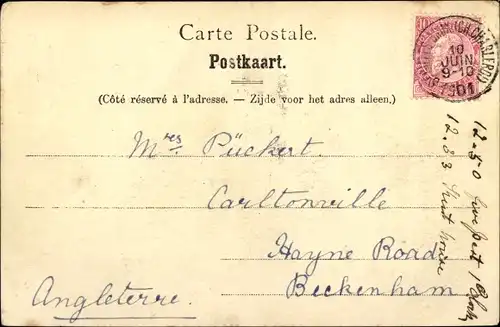 Carte Postale.
Postkaart.
(Côté réservé à l'adresse. — Zijde voor het adres alleen.)
10
10
JUIN
9-10
1901
Mres. Pückert.
Carltonville
Hayne Road
Beckenham.
Angleterre.
12-50
12.03 Kent House